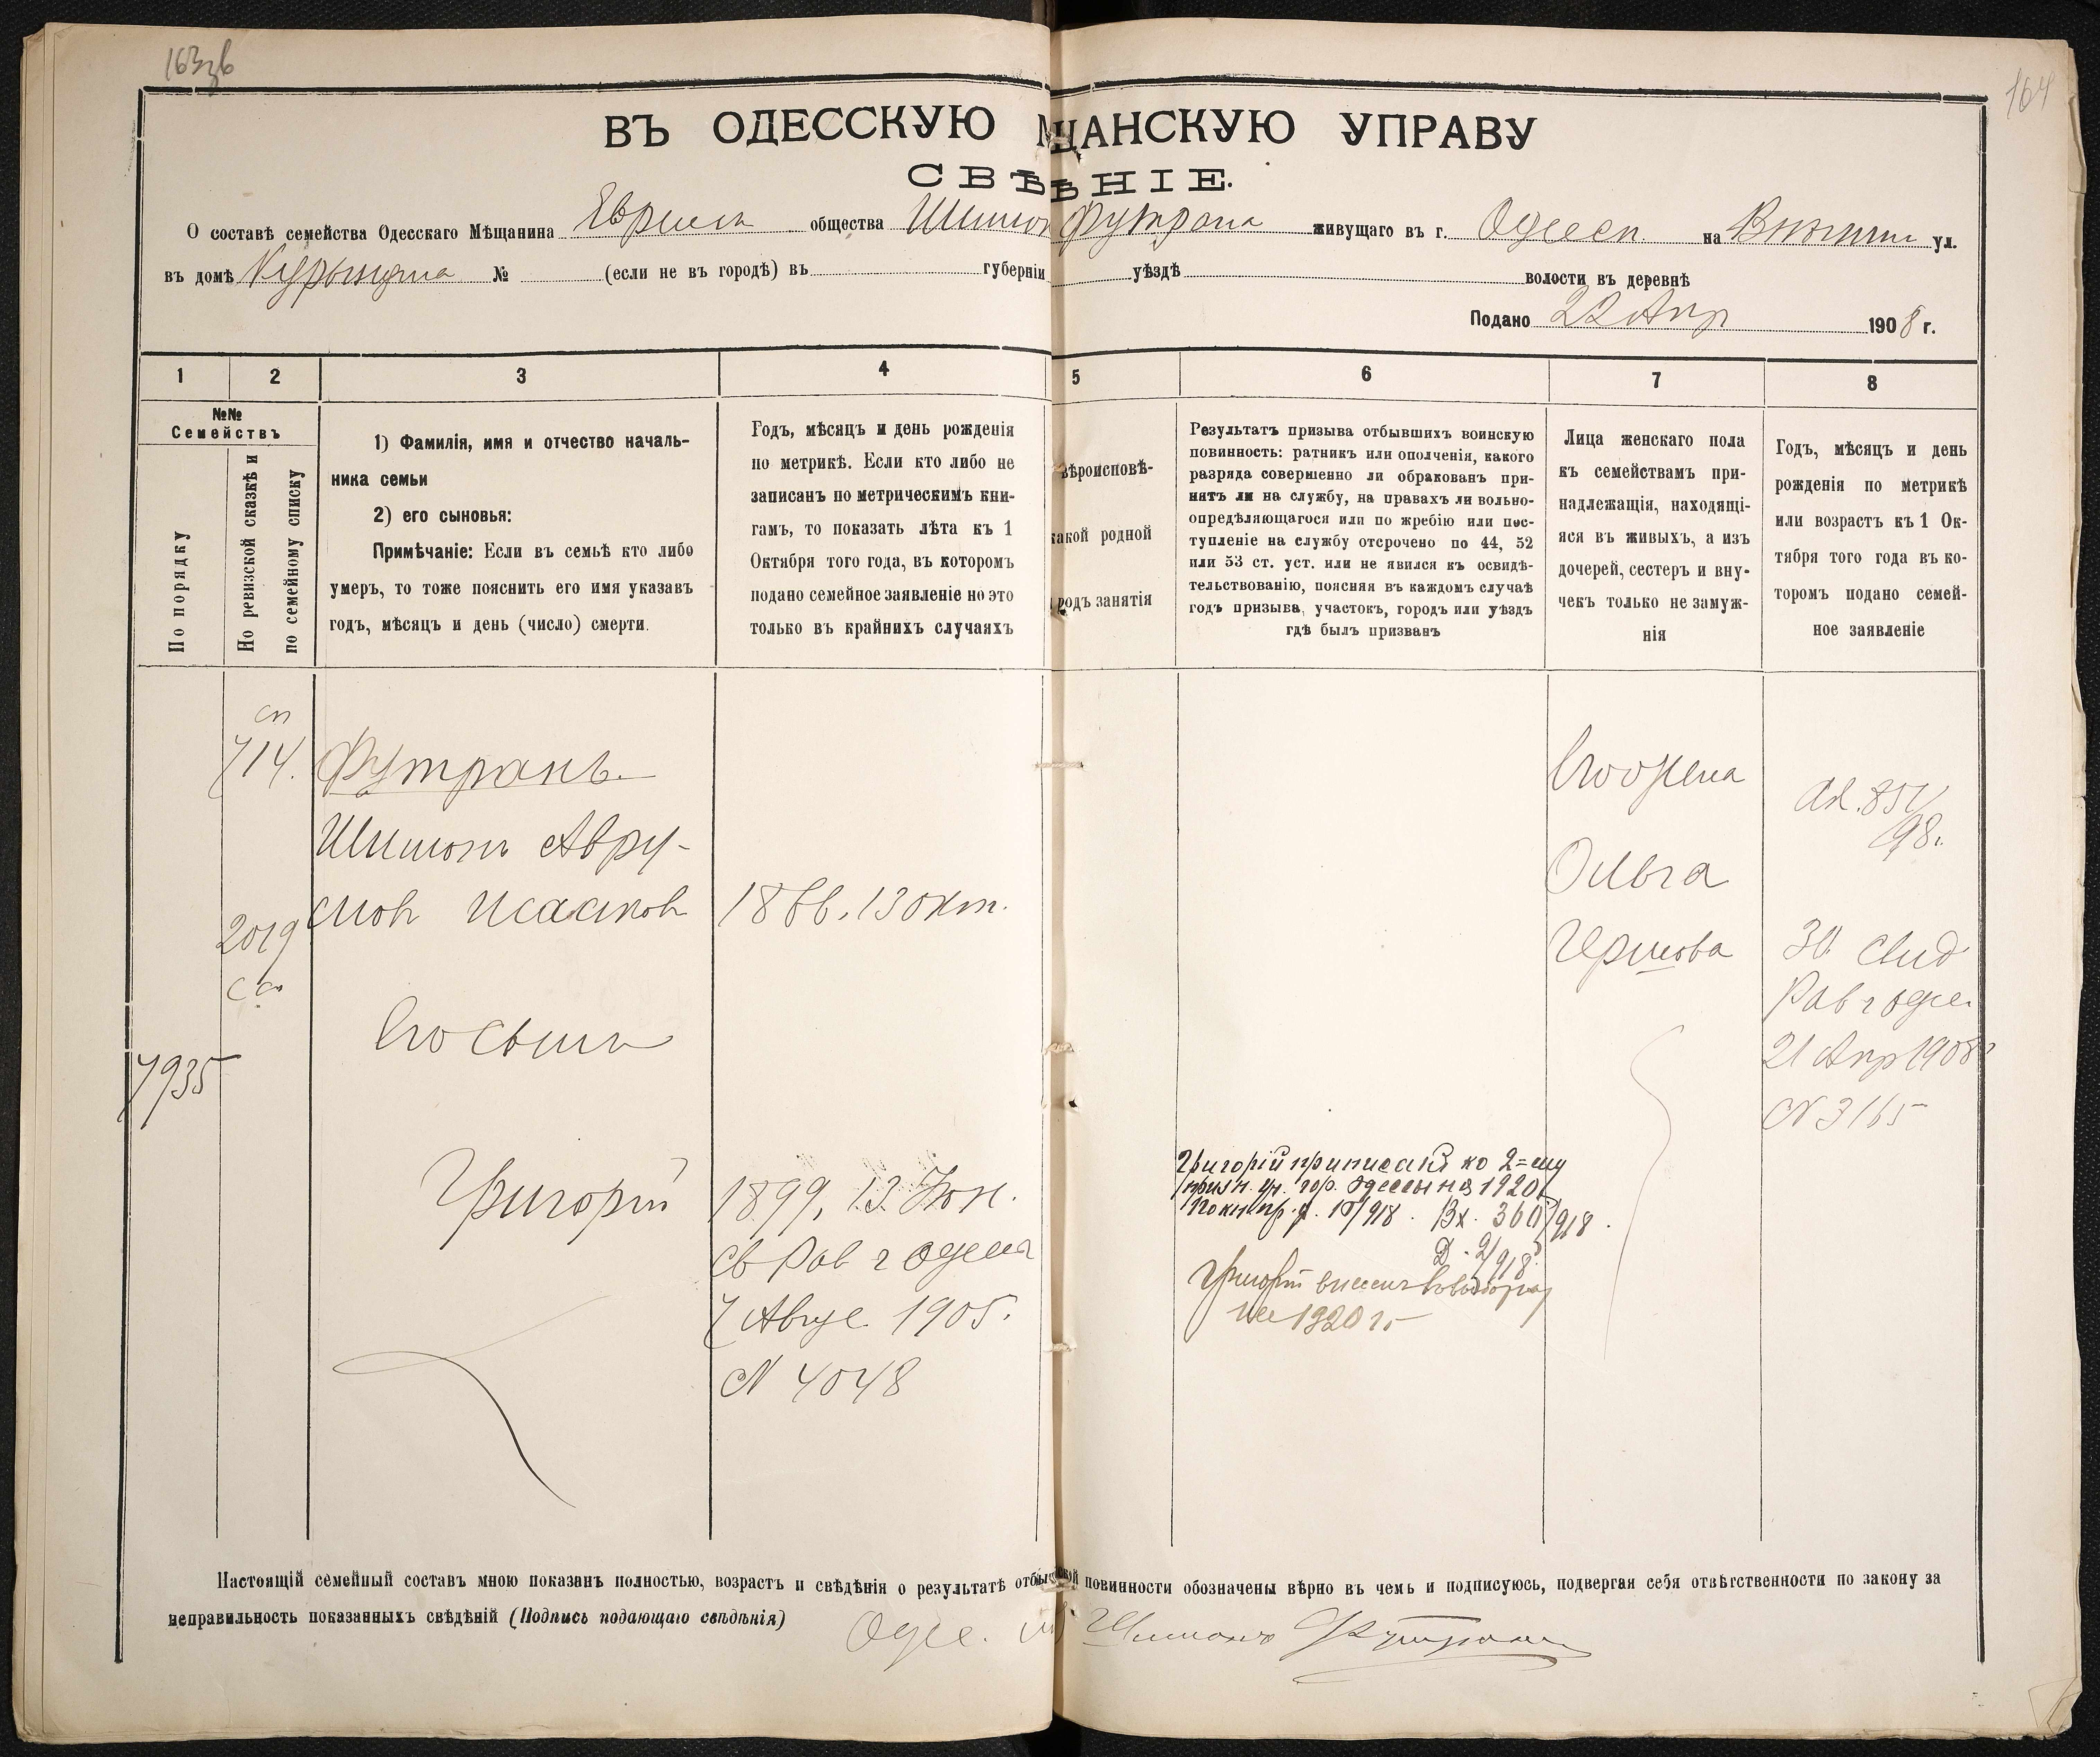 163
164
ВЪ ОДЕССКУЮ М ЩАНСКУЮ УПРАВУ
СВѢ ѢНІЕ.
О составѣ семейства Одесскаго Мѣщанина общества Шимон Футрана живущаго въ г. Одесс на ул.
въ домѣ № (если не въ городѣ) въ губерніи уѣздѣ волости въ деревнѣ
Подано 22 Апр 1908 г.
1 2 3 4 5 6 7 8
№№
Семействъ
По порядку
По ревизской сказкѣ и
по семейному списку
1) Фамилія, имя и отчество началь-
ника семьи
2) его сыновья:
Примѣчаніе: Если въ семьѣ кто либо
умеръ, то тоже пояснить его имя указавъ
годъ, мѣсяцъ и день (число) смерти.
Годъ, мѣсяцъ и день рожденія
по метрикѣ. Если кто либо не
записанъ по метрическимъ кни-
гамъ, то показать лѣта къ 1
Октября того года, въ котором
подано семейное заявленіе но это
только въ крайнихъ случаяхъ
вѣроисповѣ-
какой родной
родъ занятія
Результатъ призыва отбывшихъ воинскую
повинность: ратникъ или ополченія, какого
разряда совершенно ли обракованъ при-
нятъ ли на службу, на правахъ ли вольно-
опредѣляющагося или по жребію или пос-
тупленіе на службу отсрочено по 44, 52
или 53 ст. уст. или не явился къ освидѣ-
тельствованію, поясняя въ каждомъ случаѣ
годъ призыва, участокъ, городъ или уѣздъ
гдѣ былъ призванъ
Лица женскаго пола
къ семействамъ при-
надлежащія, находящі-
яся въ живыхъ, а изъ
дочерей, сестеръ и вну-
чекъ только не замуж-
нія
Годъ, мѣсяцъ и день
рожденія по метрикѣ
или возрастъ къ 1 Ок-
тября того года въ ко-
торомъ подано семей-
ное заявленіе
сп
714.
2019
7935
Футранъ
Шимонъ Авру-
мов Исааков
Его сынъ
Григорій
13 окт.
1899, 13 Юн.
св Рав г Одесс
7 Авгус 1905.
N 4048
Григорій приписанъ ко 2=му
приз. уч. гор. Одессы на 1920 г
Вх. 360/918.
Григорій внесен
на 1920 г.
Его жена
Ольга
98.
30. Свид
Рав г Одес.
21 Апр 1908
N 3165
Настоящій семейный составъ мною показанъ полностью, возрастъ и свѣдѣнія о результатѣ отбы ской повинности обозначены вѣрно въ чемъ и подписуюсь, подвергая себя отвѣтственности по закону за
неправильность показанныхъ свѣдѣній (Подпись подающаго свѣдѣнія) Одес. Шимонъ Футранъ